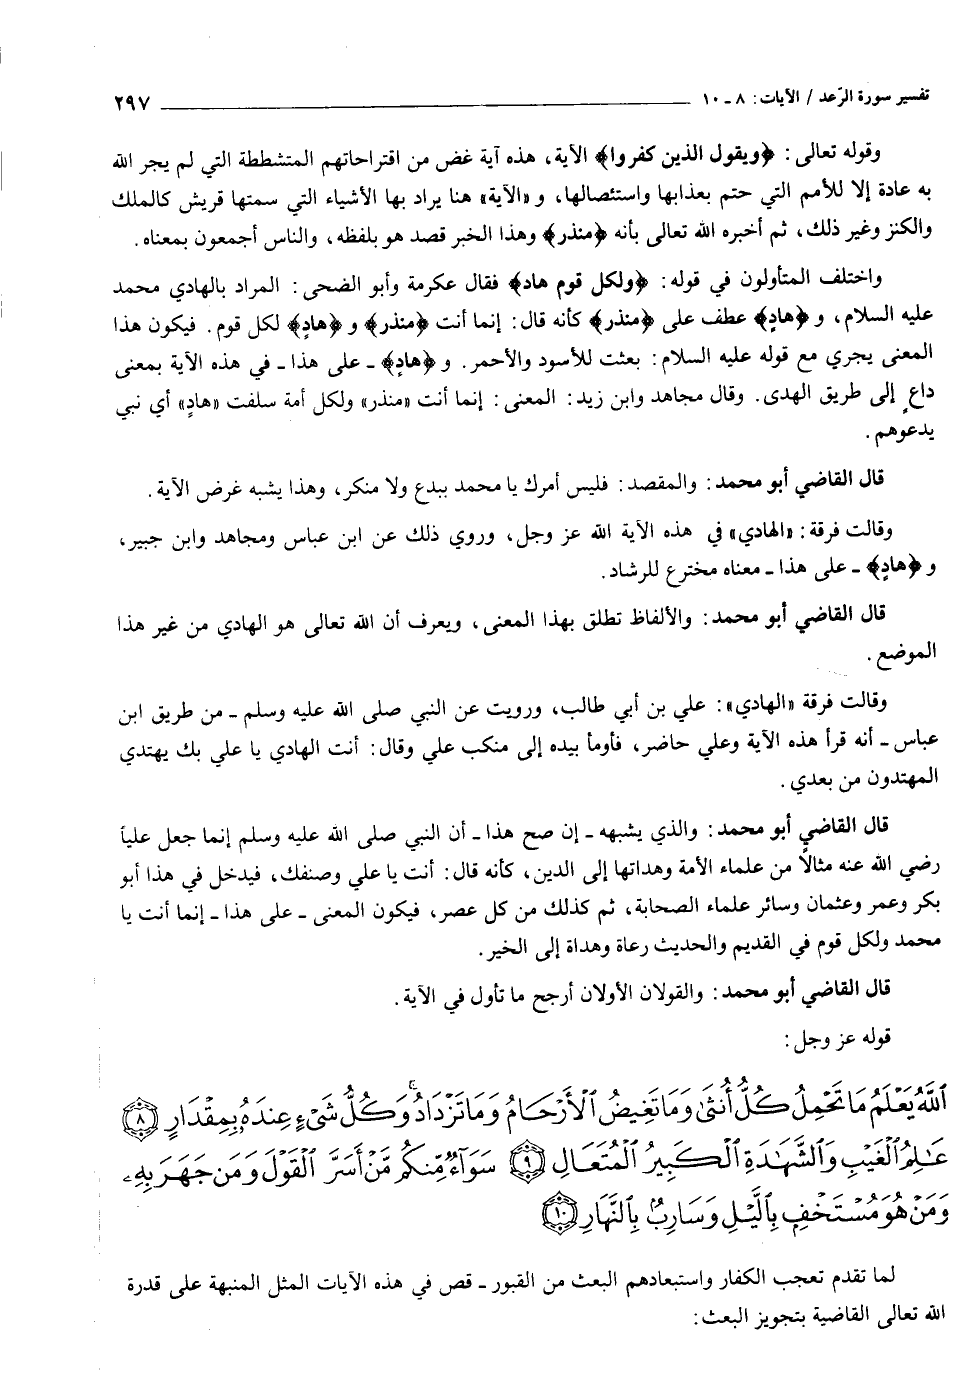 تفسير سورة الرّعد / الآيات: ٨ ـ ١٠ ٢٩٧
وقوله تعالى: ﴿ويقول الذين كفروا﴾ الآية، هذه آية غض من اقتراحاتهم المتشططة التي لم يجر الله
به عادة إلا للأمم التي حتم بعذابها واستئصالها، و «الآية» هنا يراد بها الأشياء التي سمتها قريش كالملك
والكنز وغير ذلك، ثم أخبره الله تعالى بأنه ﴿منذر﴾ وهذا الخبر قصد هو بلفظه، والناس أجمعون بمعناه.
واختلف المتأولون في قوله: ﴿ولكل قوم هاد﴾ فقال عكرمة وأبو الضحى: المراد بالهادي محمد
عليه السلام، و ﴿هادٍ﴾ عطف على ﴿منذر﴾ كأنه قال: إنما أنت ﴿منذر﴾ و ﴿هادٍ﴾ لكل قوم. فيكون هذا
المعنى يجري مع قوله عليه السلام: بعثت للأسود والأحمر. و ﴿هادٍ﴾ ـ على هذا ـ في هذه الآية بمعنى
داعٍ إلى طريق الهدى. وقال مجاهد وابن زيد: المعنى: إنما أنت «منذر» ولكل أمة سلفت «هادٍ» أي نبي
يدعوهم.
قال القاضي أبو محمد: والمقصد: فليس أمرك يا محمد ببدع ولا منكر، وهذا يشبه غرض الآية.
وقالت فرقة: «الهادي» في هذه الآية الله عز وجل، وروي ذلك عن ابن عباس ومجاهد وابن جبير،
و ﴿هادٍ﴾ ـ على هذا ـ معناه مخترع للرشاد.
قال القاضي أبو محمد: والألفاظ تطلق بهذا المعنى، ويعرف أن الله تعالى هو الهادي من غير هذا
الموضع.
وقالت فرقة «الهادي»: علي بن أبي طالب، ورويت عن النبي صلى الله عليه وسلم ـ من طريق ابن
عباس ـ أنه قرأ هذه الآية وعلي حاضر، فأومأ بيده إلى منكب علي وقال: أنت الهادي يا علي بك يهتدي
المهتدون من بعدي.
قال القاضي أبو محمد: والذي يشبهه ـ إن صح هذا ـ أن النبي صلى الله عليه وسلم إنما جعل علياً
رضي الله عنه مثالاً من علماء الأمة وهداتها إلى الدين، كأنه قال: أنت يا علي وصنفك، فيدخل في هذا أبو
بكر وعمر وعثمان وسائر علماء الصحابة، ثم كذلك من كل عصر، فيكون المعنى ـ على هذا ـ إنما أنت يا
محمد ولكل قوم في القديم والحديث رعاة وهداة إلى الخير.
قال القاضي أبو محمد: والقولان الأولان أرجح ما تأول في الآية.
قوله عز وجل:
ٱللَّهُ يَعْلَمُ مَا تَحْمِلُ كُلُّ أُنثَىٰ وَمَا تَغِيضُ ٱلْأَرْحَامُ وَمَا تَزْدَادُ ۖ وَكُلُّ شَىْءٍ عِندَهُۥ بِمِقْدَارٍ ٨
عَٰلِمُ ٱلْغَيْبِ وَٱلشَّهَٰدَةِ ٱلْكَبِيرُ ٱلْمُتَعَالِ ٩ سَوَآءٌ مِّنكُم مَّنْ أَسَرَّ ٱلْقَوْلَ وَمَن جَهَرَ بِهِۦ
وَمَنْ هُوَ مُسْتَخْفٍۭ بِٱلَّيْلِ وَسَارِبٌۢ بِٱلنَّهَارِ ١٠
لما تقدم تعجب الكفار واستبعادهم البعث من القبور ـ قص في هذه الآيات المثل المنبهة على قدرة
الله تعالى القاضية بتجويز البعث: